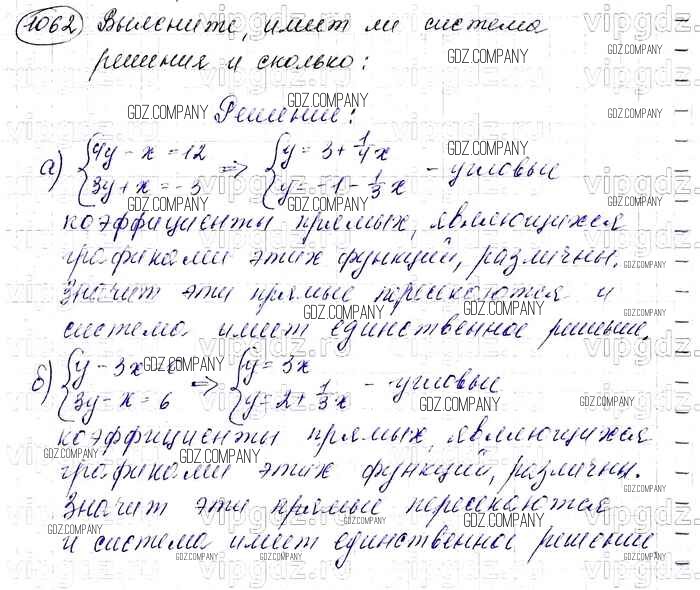 1062 Выясните, имеет ли система
решения и сколько:
Решение:
а) {4y - x = 12 => {y = 3 + 1/4 x - угловые
{3y + x = -3 {y = -1 - 1/3 x
коэффициенты прямых, являющихся
графиками этих функций, различны.
Значит эти прямые пересекаются и
система имеет единственное решение.
б) {y - 3x = 0 => {y = 3x - угловые
{3y - x = 6 {y = 2 + 1/3 x
коэффициенты прямых, являющихся
графиками этих функций, различны.
Значит эти прямые пересекаются
и система имеет единственное решение.
GDZ.COMPANY
vipgdz.ru